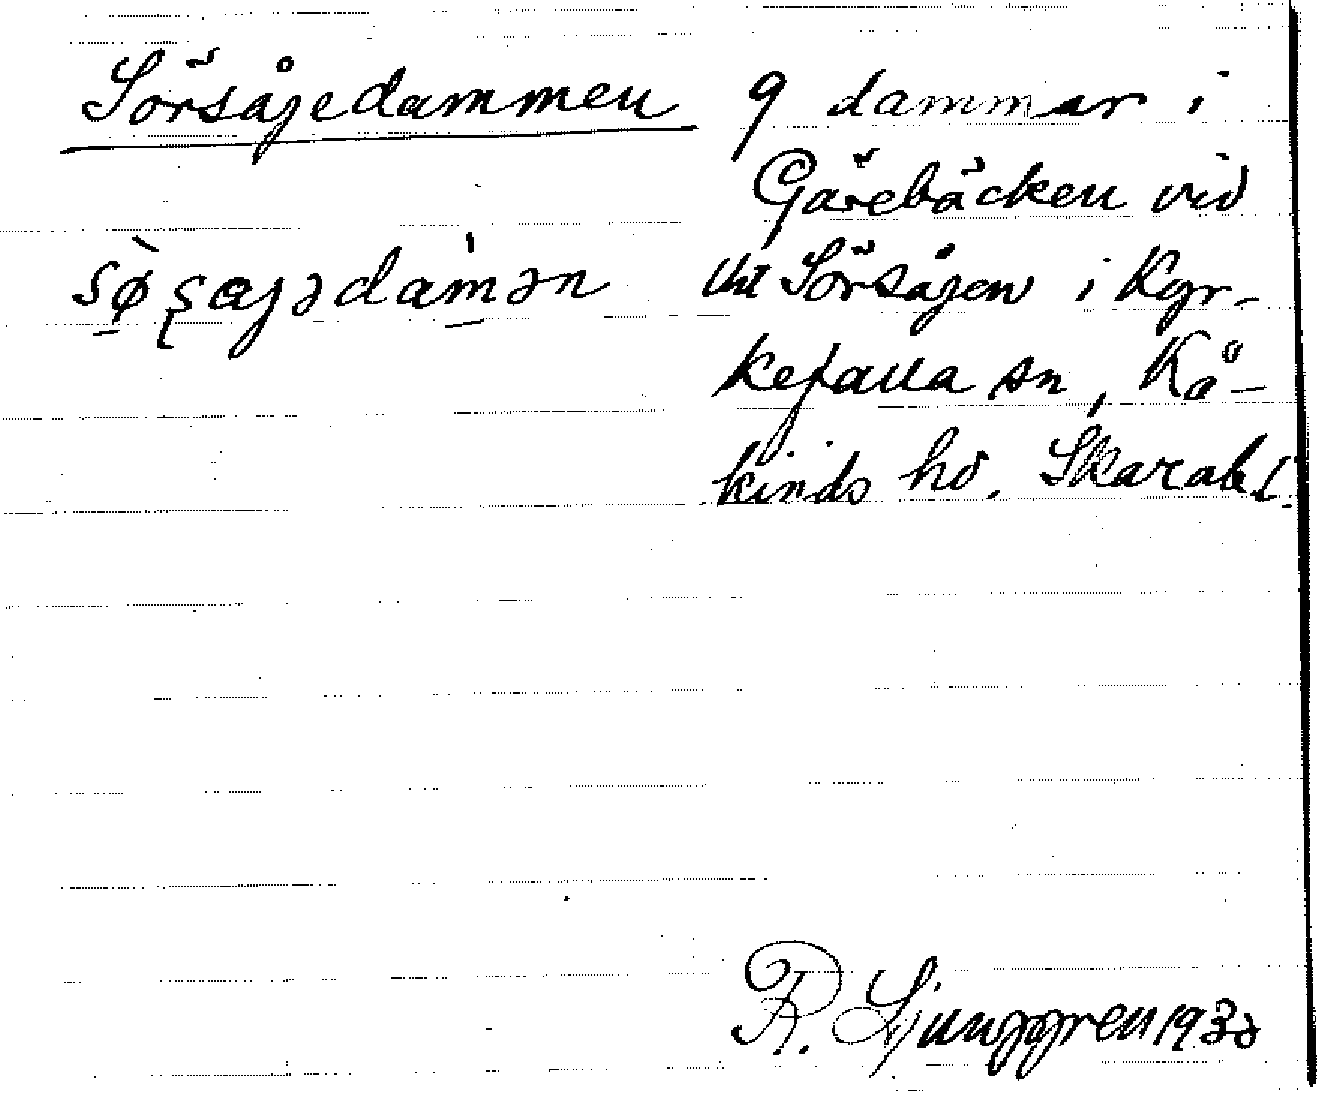 Sörsåjedammen 9 dammar i
Gärebäcken vid
Sörsåjen i Kyr-
kefalla sn, Kå-
kinds hd. Skarab l.
R. Ljunggren